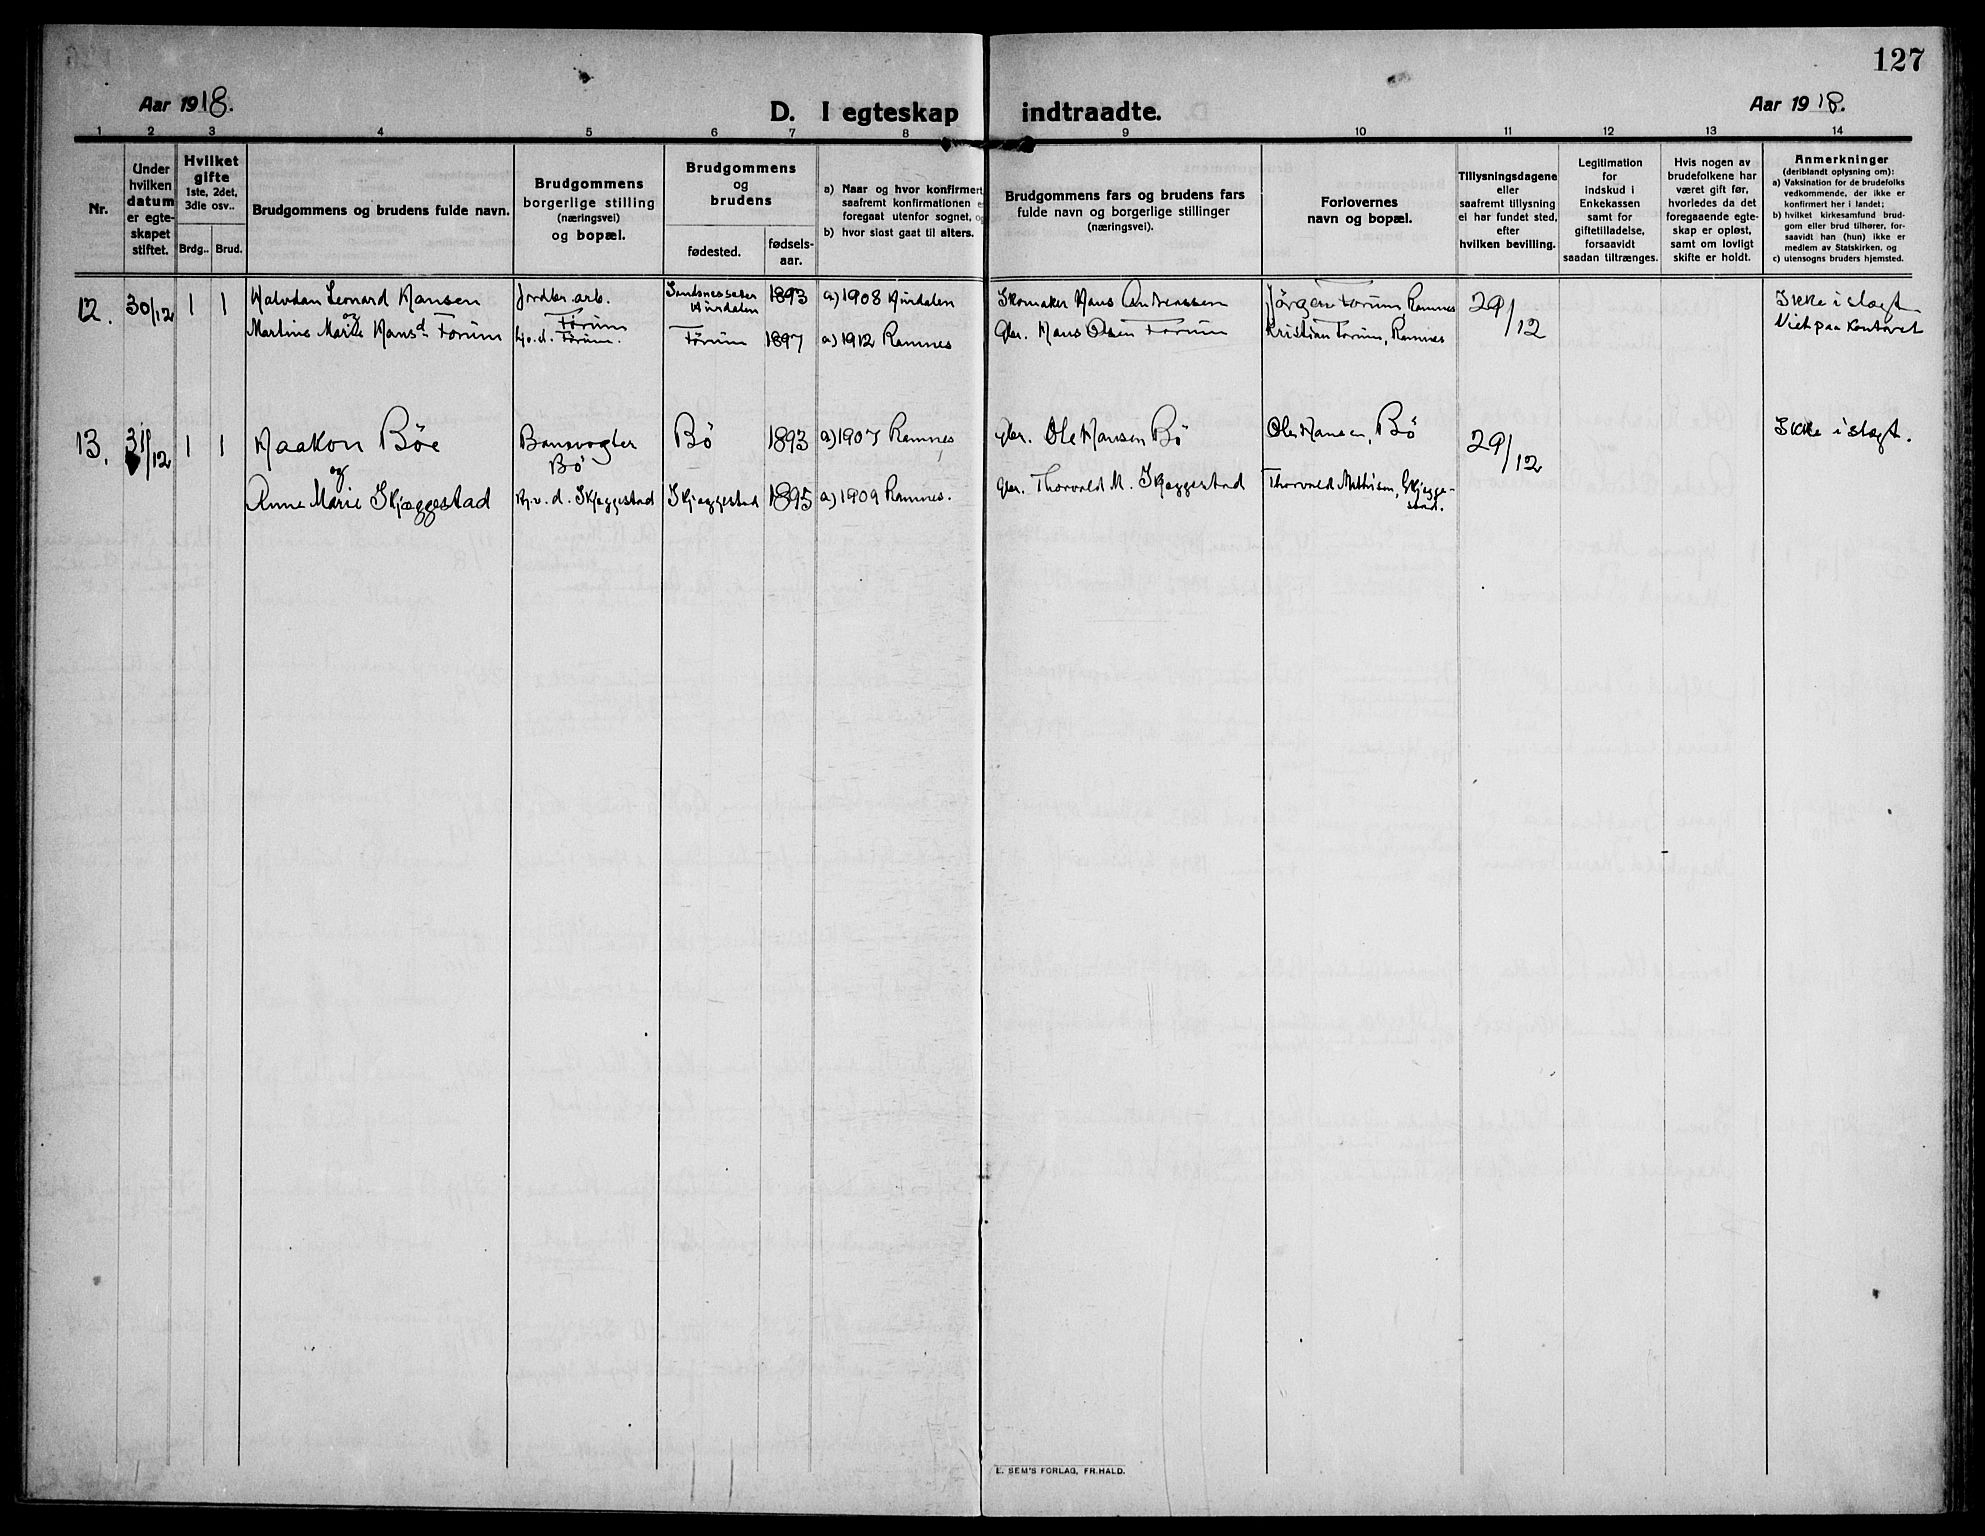 127
Aar 1918.
D. I egteskap indtraadte.
Aar 1918.
1 2 3 4 5 6 7 8 9 10 11 12 13 14
Nr.
Under
hvilken
datum
er egte-
skapet
stiftet.
Hvilket
gifte
1ste, 2det,
3dle osv..
Brdg.. Brud.
Brudgommens og brudens fulde navn.
Brudgommens
borgerlige stilling
(næringsvei)
og bopæl.
Brudgommens
og
brudens
fødested.
fødsels-
aar.
a) Naar og hvor konfirmert,
saafremt konfirmationen e
foregaat utenfor sognet, og
b) hvor sidst gaat til alters.
Brudgommens fars og brudens fars
fulde navn og borgerlige stillinger
(næringsvei).
Forlovernes
navn og bopæl.
Tillysningsdagene
eller
saafremt tillysning
ei har fundet sted,
efter
hvilken bevilling.
Legitimation
for
indskud i
Enkekassen
samt for
giftetilladelse,
forsaavidt
saadan tiltrænges.
Hvis nogen av
brudefolkene har
været gift før,
hvorledes da det
foregaaende egte-
skap er opløst,
samt om lovligt
skifte er holdt.
Anmerkninger
(deriblandt oplysning om):
a) Vaksination for de brudefolks
vedkommende, der ikke er
konfirmert her i landet;
b) hvilket kirkesamfund brud-
gom eller brud tilhører, for-
saavidt han (hun) ikke er
medlem av Statskirken, og
c) utensogns bruders hjemsted.
12. 30/12 1 1 Halvdan Leonard Hansen Jordbr. arb. Førum Sandsnessæter Hurdalen 1893 a) 1908 Hurdalen Skomaker Hans Andreassen Jørgen Førum, Ramnes 29/12 Ikke i slægt
og
Martine Marie Hansd. Førum hj.v.d. Førum. Førum 1897 a) 1912 Ramnes Gbr. Hans Olsen Førum Kristian Førum, Ramnes Viet paa Kontoret
13. 31/12 1 1 Haakon Bøe Banevogter Bø Bø 1893 a) 1907 Ramnes Gbr. Ole Hansen Bø Ole Hansen, Bø 29/12 Ikke i slægt.
og
Anne Marie Skjæggestad hj.v.d. Skjæggestad Skjæggestad 1895 a) 1909 Ramnes. Gbr. Thorvald M. Skjæggestad Thorvald Mathisen, Skjægge-
stad.
E. SEM'S FORLAG, FR.HALD.